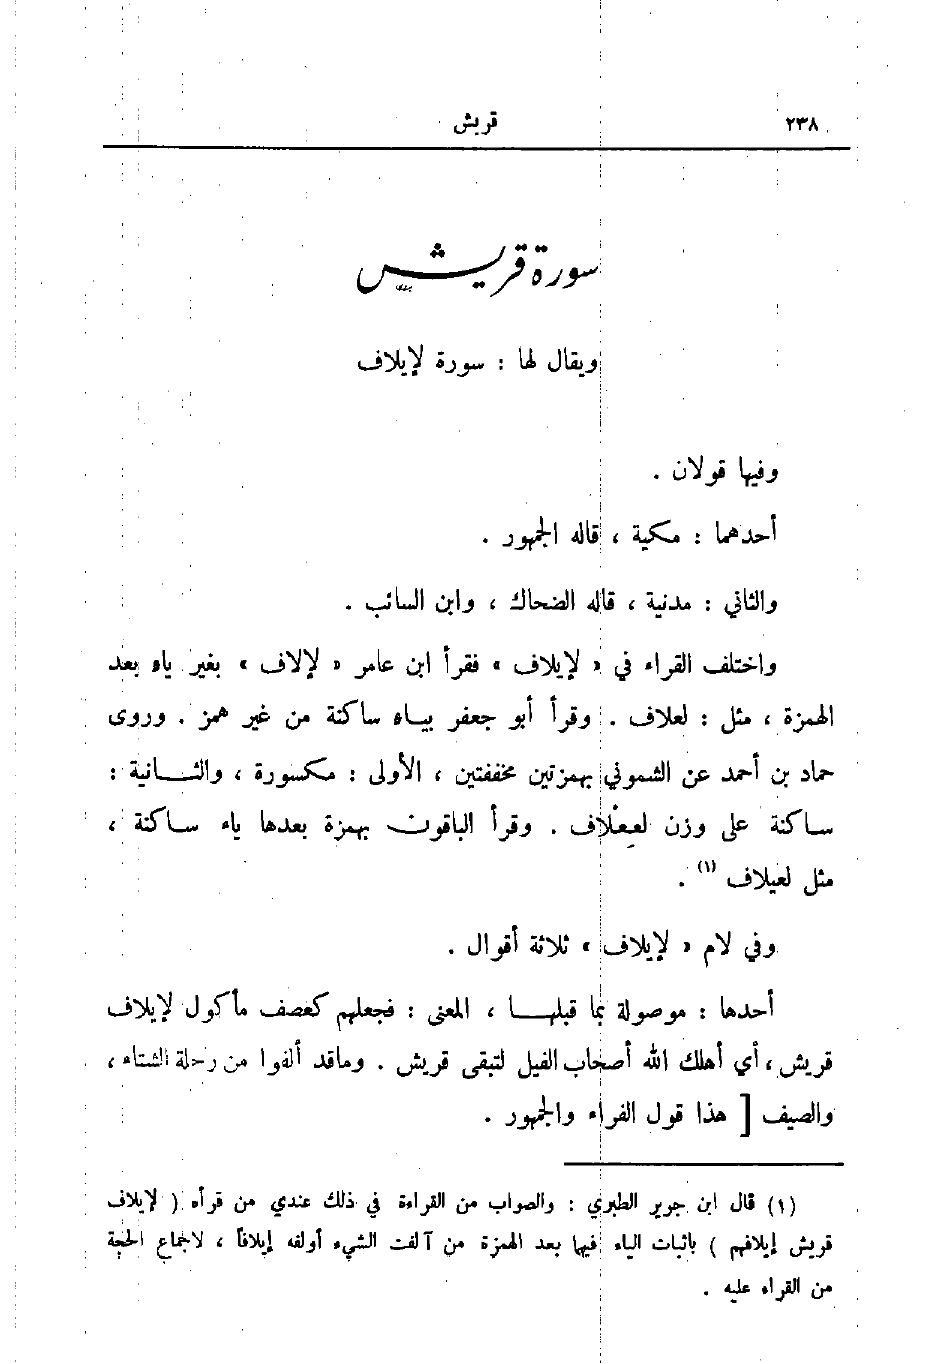 ٢٣٨
قريش
سورة قريش
ويقال لها : سورة لإيلاف
وفيها قولان .
أحدهما : مكية ، قاله الجمهور .
والثاني : مدنية ، قاله الضحاك ، وابن السائب .
واختلف القراء في « لإيلاف » فقرأ ابن عامر « لإلاف » بغير ياء بعد
الهمزة ، مثل : لعلاف . وقرأ أبو جعفر بياء ساكنة من غير همز . وروى
حماد بن أحمد عن الشموني بهمزتين مخففتين ، الأولى : مكسورة ، والثانية :
ساكنة على وزن لعِعْلاف . وقرأ الباقون بهمزة بعدها ياء ساكنة ،
مثل لعيلاف (١) .
وفي لام « لإيلاف » ثلاثة أقوال .
أحدها : موصولة بما قبلها ، المعنى : فجعلهم كعصف مأكول لإيلاف
قريش ، أي أهلك الله أصحاب الفيل لتبقى قريش . وماقد ألفوا من رحلة الشتاء ،
والصيف [ هذا قول الفراء والجمهور .
(١) قال ابن جرير الطبري : والصواب من القراءة في ذلك عندي من قرأه ( لإيلاف
قريش إيلافهم ) باثبات الياء فيها بعد الهمزة من آلفت الشيء أولفه إيلافاً ، لاجماع الحجة
من القراء عليه .